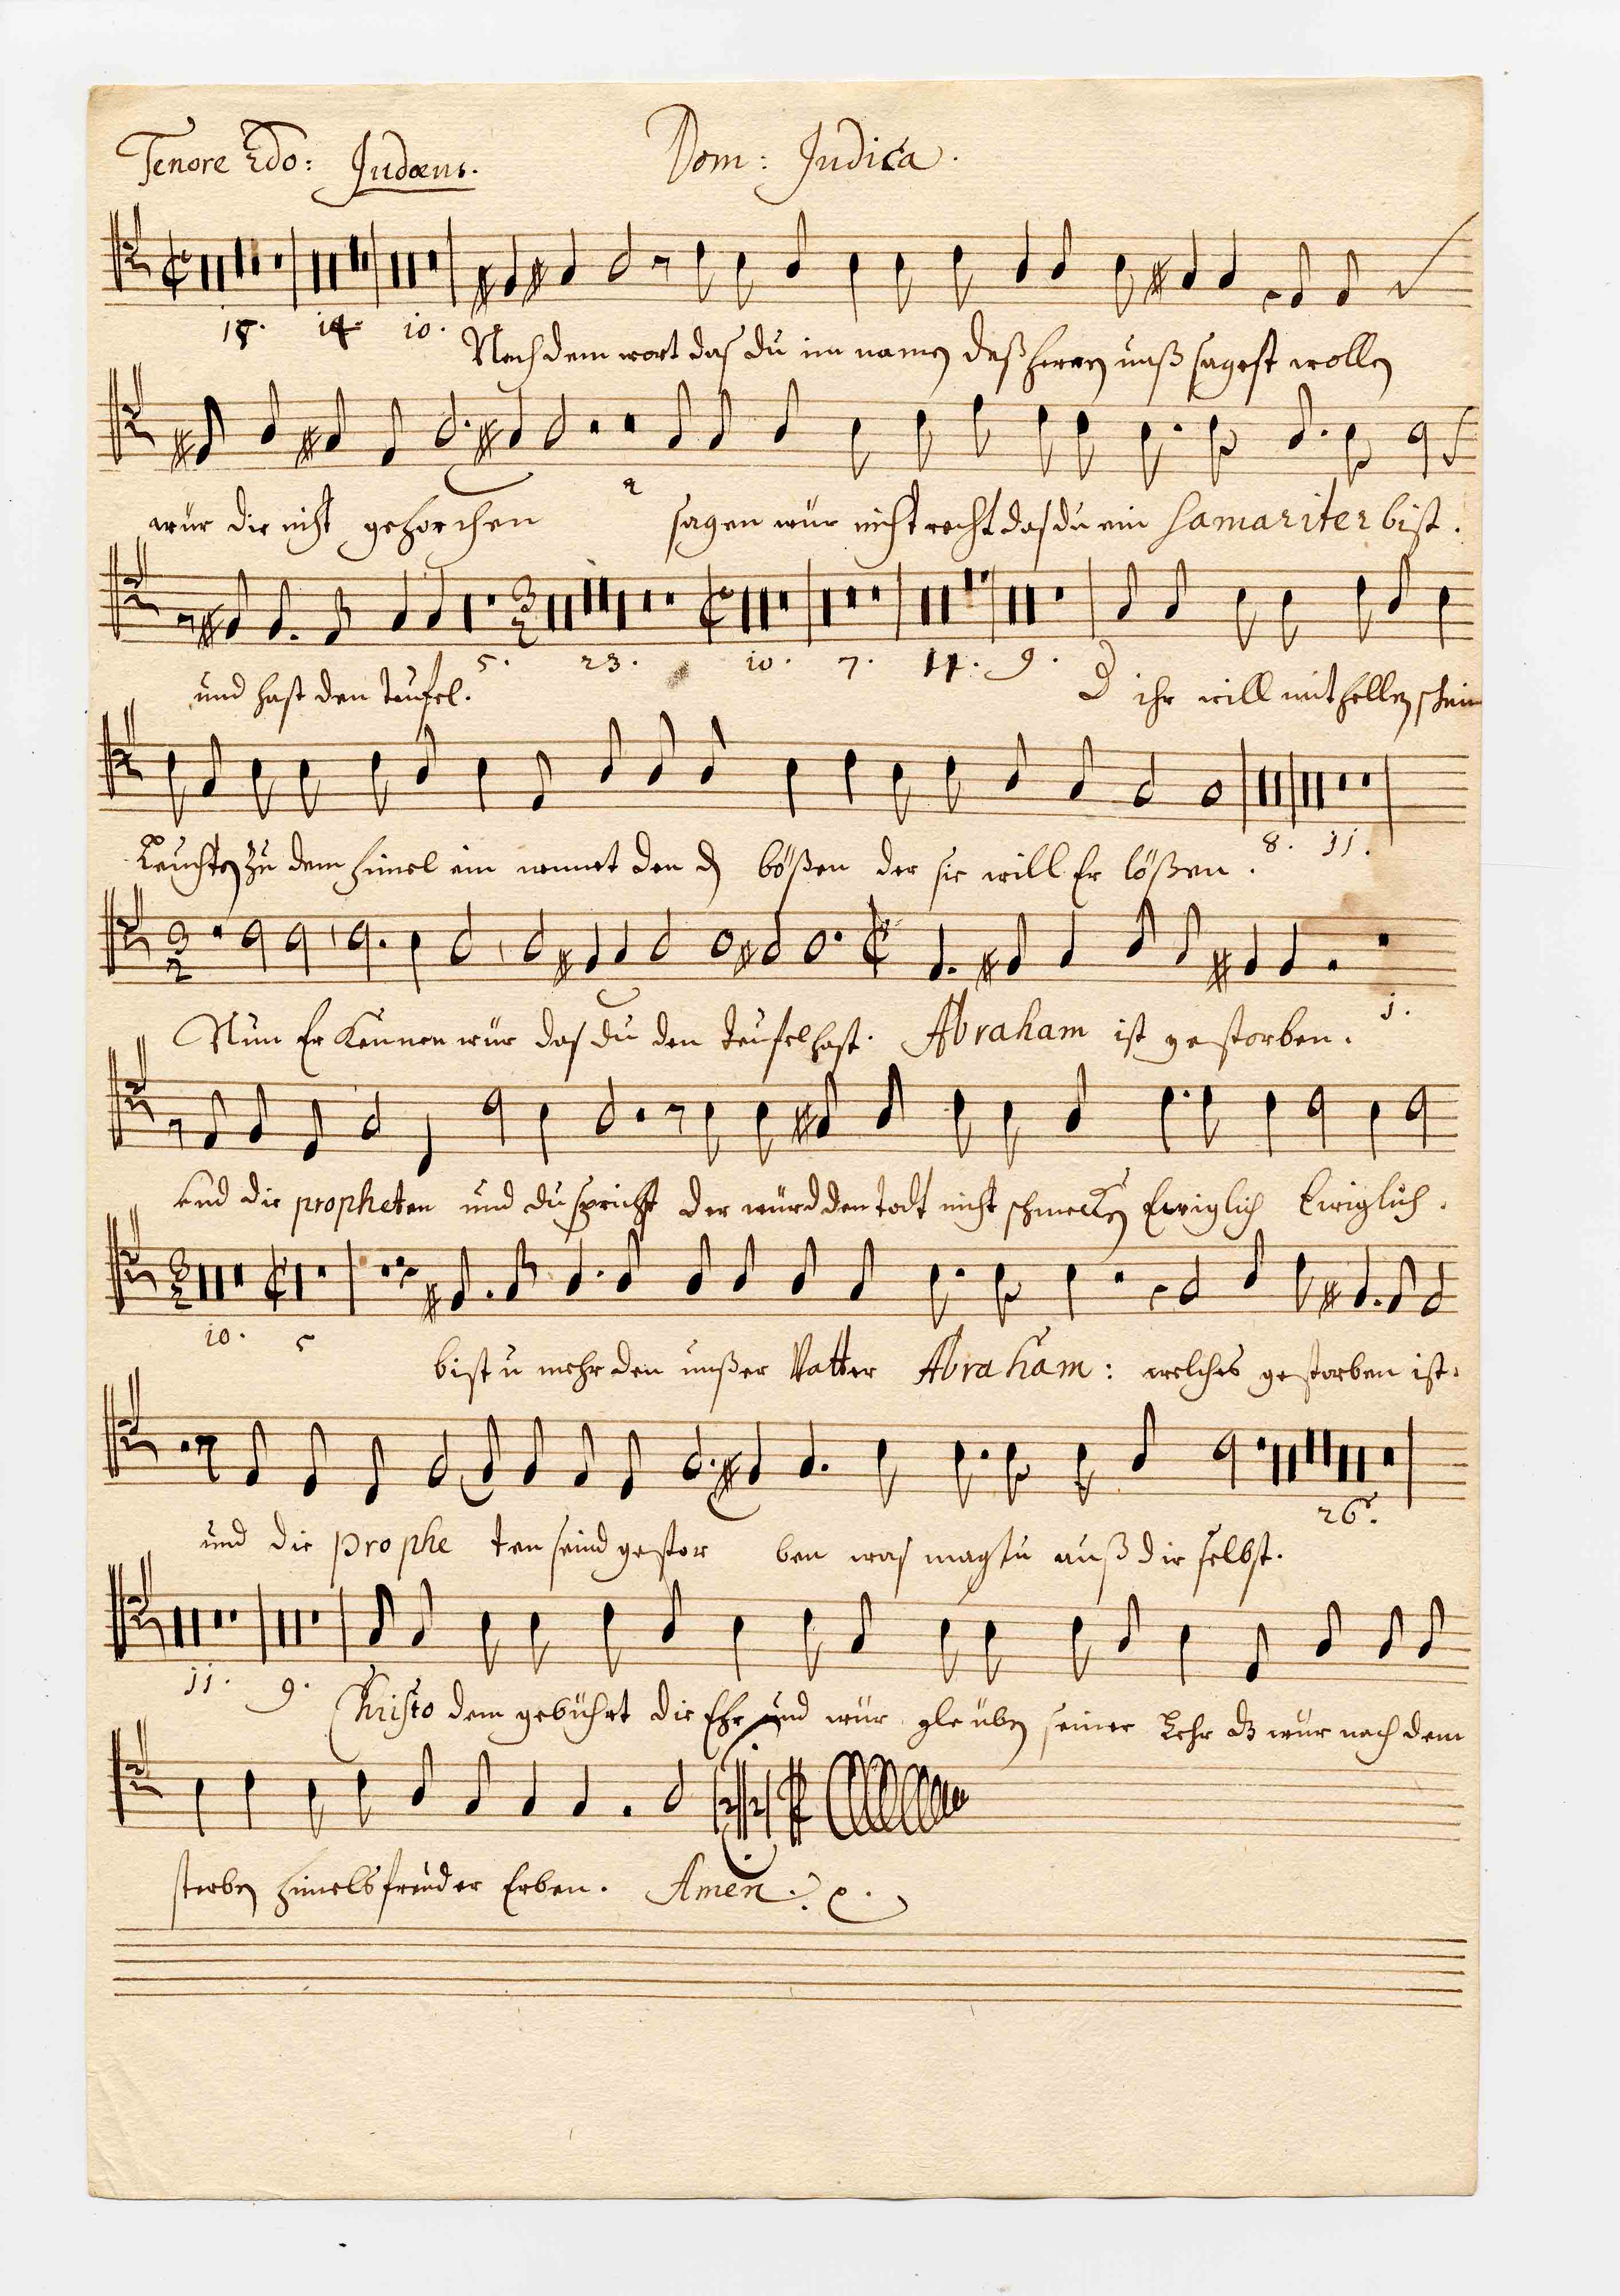 Tenore 2do: Judaeus. Dom: Judica.
15. 14. 10.
Nach dem wort das du im namen deß herren unß sagest wollen
wür dir nicht gehorchen 2 sagen wür nicht recht das du ein Samariter bist.
5. 23. 10. 7. 14. 9.
und hast den teufel. ihr will mit hellen schein
8. 11.
Leuchten zu dem himel ein nemmet den bößen der sie will Er lößen.
1.
Nun Er Kennen wür das du den teufel hast. Abraham ist gestorben.
und die propheten und du sprichst der würd den todt nicht schmecken Ewiglich Ewiglich.
10. 5
bistu mehr den unßer Vatter Abraham: welches gestorben ist.
26.
und die prophe ten seind gestor ben was magstu auß dir selbst.
11. 9.
Christo dem gebührt die Ehr und wür gleüben seiner Lehr dz wür nach dem
sterben himelsfreüd er Erben. Amen.